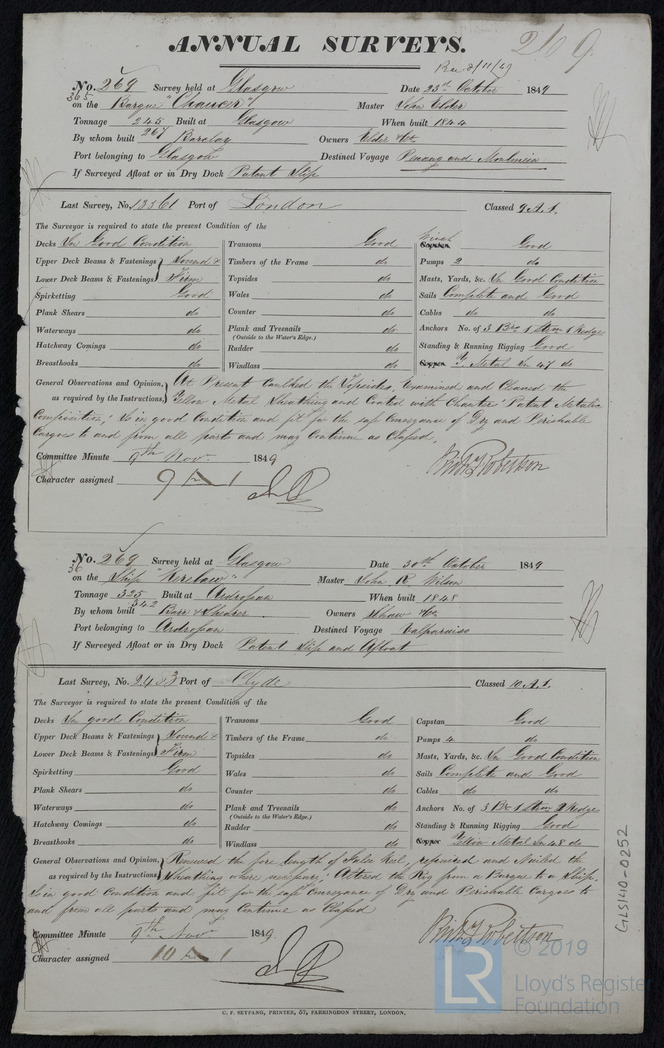 ANNUAL SURVEYS. 269.
Rec 2/11/49
No. 269 Survey held at Glasgow Date 23rd October 1849
365 on the Barque "Chaucer" Master John Elder
Tonnage 245 Built at Glasgow When built 1844
267
By whom built Barclay Owners Elder &Co
Port belonging to Glasgow Destined Voyage Penang and Moulmein
If Surveyed Afloat or in Dry Dock Patent Slip
Last Survey, No. 13361 Port of London Classed 9.A.1.
The Surveyor is required to state the present Condition of the
Decks In Good Condition Transoms Good Winch Capstan Good
Upper Deck Beams & Fastenings Sound & Timbers of the Frame do Pumps 2 do
Lower Deck Beams & Fastenings Firm Topsides do Masts, Yards, &c. In Good Condition
Spirketting Good Wales do Sails Complete and Good
Plank Shears do Counter do Cables do do
Waterways do Plank and Treenails do Anchors No. of 3 Brs 1 Strm 1 Kedge
(Outside to the Water's Edge.)
Hatchway Comings do Rudder do Standing & Running Rigging Good
Breasthooks do Windlass do Copper Y. Metal in 47 do
General Observations and Opinion, At Present Caulked the Topsides, Examined and Cleaned the
as required by the Instructions, Yellow Metal Sheathing and Coated with Patent Metalic
Composition; Is in good Condition and fit for the safe Conveyance of Dry and Perishable
Cargoes to and from all parts and may Continue as Classed.
Committee Minute 9th Nov. 1849
Character assigned 9 A 1
Robertson
No. 269 Survey held at Glasgow Date 30th October 1849
36 on the Ship "Kerelaw" Master John R. Wilson
Tonnage 325 Built at Ardrossan When built 1848
342
By whom built Barr & Shearer Owners Shaw &Co
Port belonging to Ardrossan Destined Voyage Valparaiso
If Surveyed Afloat or in Dry Dock Patent Slip and Afloat
Last Survey, No. 2483 Port of Clyde Classed 10.A.1.
The Surveyor is required to state the present Condition of the
Decks In good Condition Transoms Good Capstan Good
Upper Deck Beams & Fastenings Sound & Timbers of the Frame do Pumps 4 do
Lower Deck Beams & Fastenings Firm Topsides do Masts, Yards, &c. In Good Condition
Spirketting Good Wales do Sails Complete and Good
Plank Shears do Counter do Cables do do
Waterways do Plank and Treenails do Anchors No. of 3 Br 1 Strm 2 Kedge
(Outside to the Water's Edge.)
Hatchway Comings do Rudder do Standing & Running Rigging Good
Breasthooks do Windlass do Copper Yellow Metal in 48 do
General Observations and Opinion, Renewed the fore length of False Keel, repaired and Nailed the
as required by the Instructions, Sheathing where necessary; Altered the Rig from a Barque to a Ship.
Is in good Condition and fit for the safe Conveyance of Dry and Perishable Cargoes to
and from all parts and may Continue as Classed
Committee Minute 9th Novr 1849.
Character assigned 10 A 1
Robertson
C. F. SEYFANG, PRINTER, 57, FARRINGDON STREET, LONDON.
GLS140-0252
LR © 2019
Lloyd's Register
Foundation